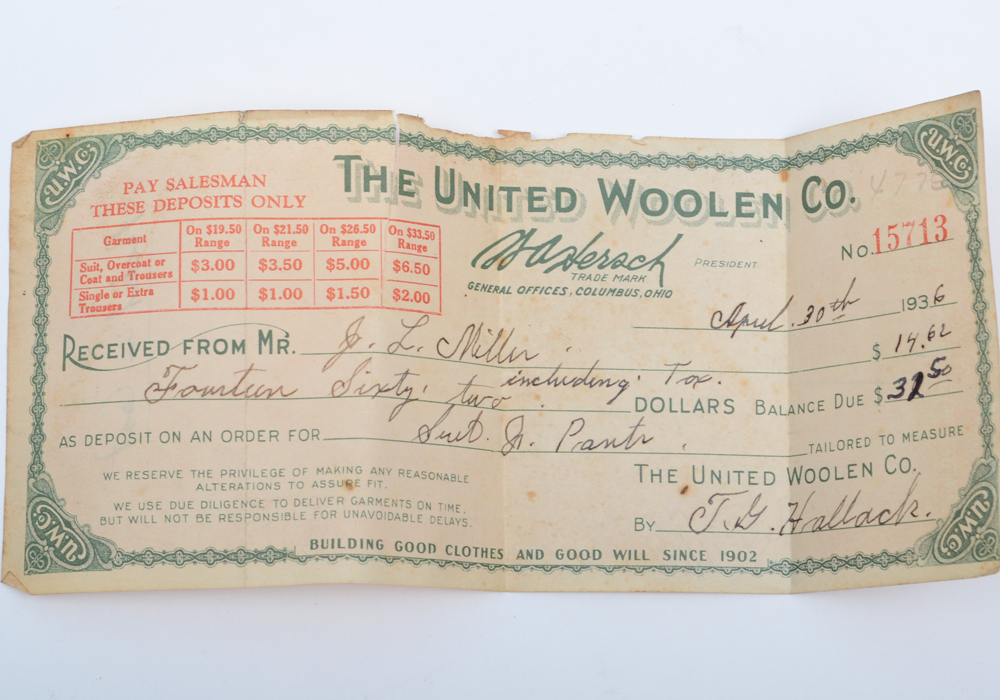 U.W.Co.
U.W.Co.
PAY SALESMAN
THESE DEPOSITS ONLY
THE UNITED WOOLEN CO.
Garment
On $19.50 Range
On $21.50 Range
On $26.50 Range
On $33.50 Range
Suit, Overcoat or Coat and Trousers
$3.00
$3.50
$5.00
$6.50
Single or Extra Trousers
$1.00
$1.00
$1.50
$2.00
Hersch
PRESIDENT
TRADE MARK
GENERAL OFFICES, COLUMBUS, OHIO
No. 15713
April. 30th 1936
RECEIVED FROM MR. J. L. Miller
$ 14.62
Fourteen Sixty two including Tax. DOLLARS BALANCE DUE $
50
AS DEPOSIT ON AN ORDER FOR Pants TAILORED TO MEASURE
WE RESERVE THE PRIVILEGE OF MAKING ANY REASONABLE
ALTERATIONS TO ASSURE FIT.
THE UNITED WOOLEN CO.
WE USE DUE DILIGENCE TO DELIVER GARMENTS ON TIME,
BUT WILL NOT BE RESPONSIBLE FOR UNAVOIDABLE DELAYS.
BY T. G. Hallack.
BUILDING GOOD CLOTHES AND GOOD WILL SINCE 1902
U.W.Co.
U.W.Co.